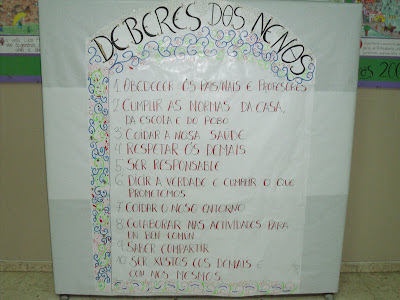 DEBERES DOS NENOS
1 OBEDECER ÓS PAIS, NAIS E PROFESORES
2 CUMPLIR AS NORMAS DA CASA,
DA ESCOLA E DO POBO
3 COIDAR A NOSA SAÚDE
4 RESPETAR ÓS DEMAIS
5 SER RESPONSABLE
6 DICIR A VERDADE E CUMPLIR O QUE
PROMETEMOS.
7 COIDAR O NOSO ENTORNO
8 COLABORAR NAS ACTIVIDADES PARA
UN BEN COMÚN
9 SABER COMPARTIR
10 SER XUSTOS COS DEMAIS E
CON NÓS MESMOS.